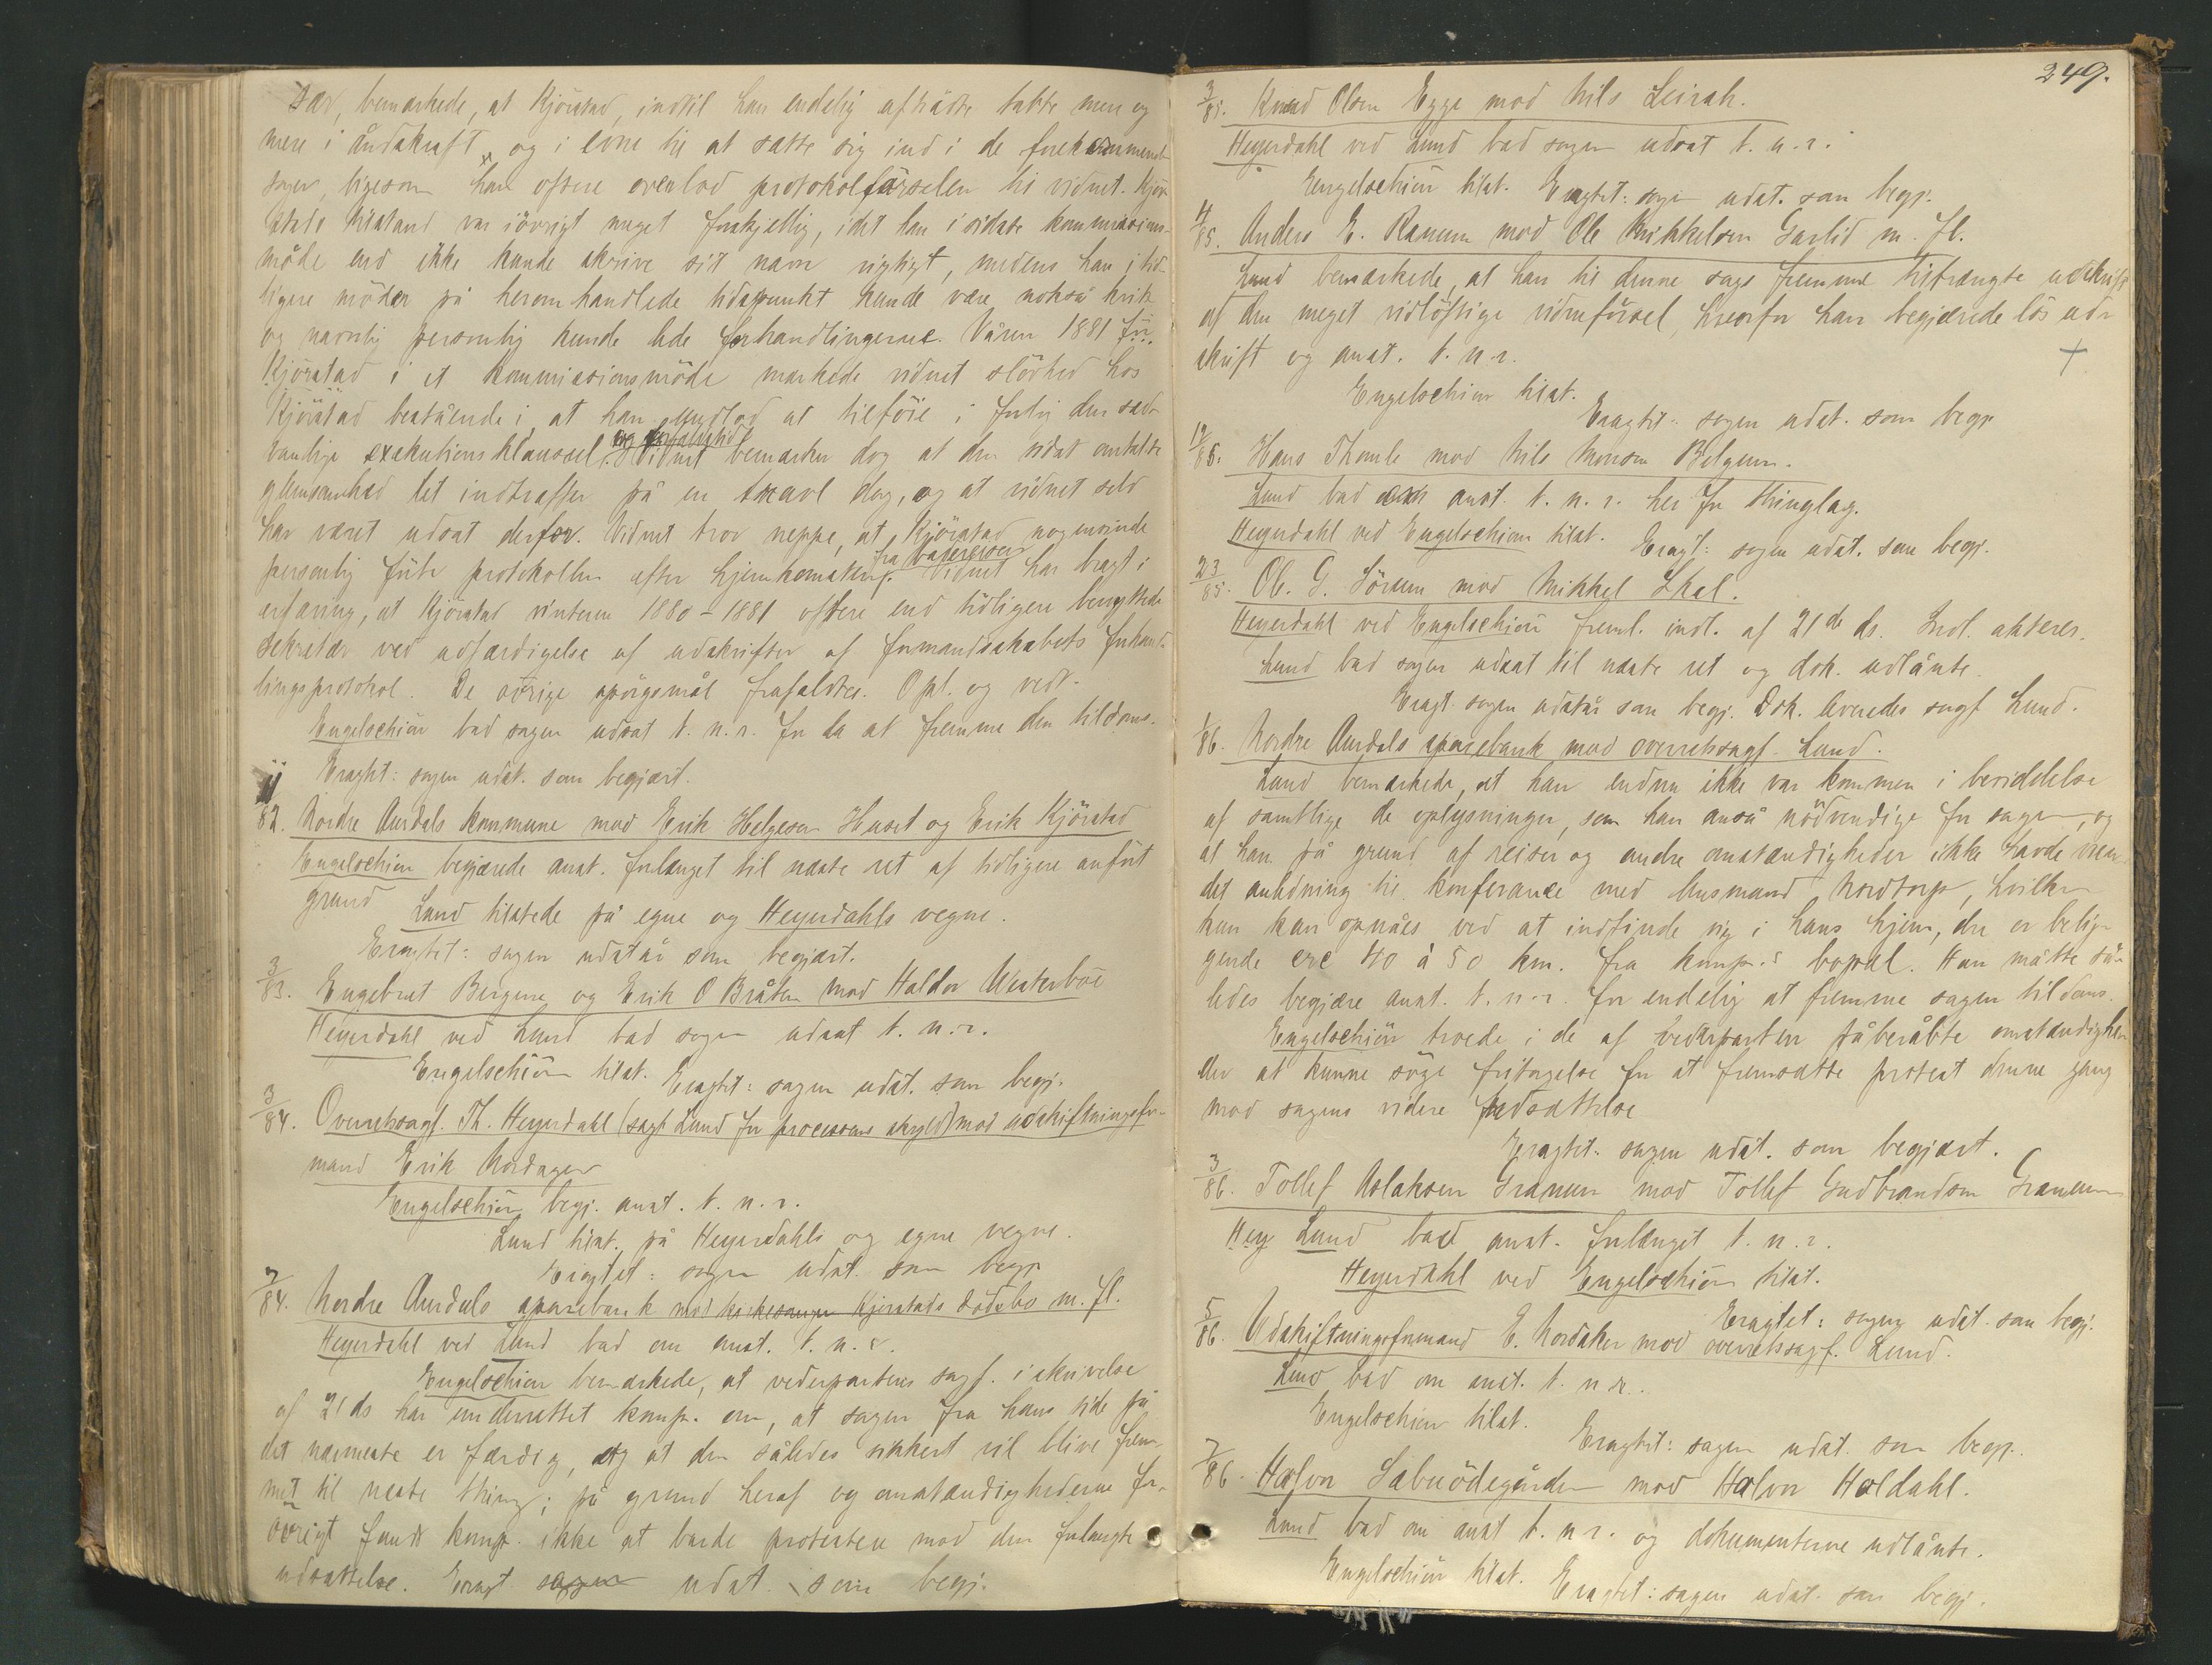 bemærkede, at Kjörstad, indtil han endelig aftrådte tabte mer og
mere i åndskraft og i evne til at sætte sig ind i de forekommende
sager, ligesom han oftere overlod protokolförselen til vidnet. Kjör-
stads tilstand var iövrigt meget forskjellig, idet han i sidste kommissions-
möde end ikke kunde skrive sit navn rigtigt, medens han i tid-
ligere möder på heromhandlede tidspunkt kunde være nokså kvik
og navnlig personlig kunde lede forhandlingerne. Våren 1881 för
Kjörstad i et kommissionsmöde mærkede vidnet slövhed hos
Kjörstad bestående i, at han undlod at tilföie i forlig den sæd-
vanlige exekutionsklausul. Vidnet bemærker dog at den sidst omtalte
glemsomhed let indtræffer på en travl dag, og at vidnet selv
har været udsat derfor. Vidnet tror neppe, at Kjörstad nogensinde
personlig förte protokollen efter hjemkomsten fra badereisen. Vidnet har bragt i
erfaring, at Kjörstad vinteren 1880-1881 oftere end tidligere benyttede
sekretær ved udfærdigelse af udskrifter af formandskabets forhand-
lingsprotokol. De övrige spörgsmål frafaldtes. Opl. og vedt.
Engelschiön bad sagen udsat t. n. r. for da at fremme den til doms.
Eragtet: sagen udst. som begjært.
11/82. Nordre Aurdals kommune mod Erik Helgesen Huset og Erik Kjörstad
Engelschiön begjærede anst. forlænget til næste ret af tidligere anfört
grund
Lund tilstede på egne og Heyerdahls vegne.
Eragtet: sagen udstår som begjært.
3/83. Engebret Bergene og Erik O Bråten mod Haldor Westerboe
Heyerdahl ved Lund bad sagen udsat t. n. r.
Engelschiön tilst. Eragtet: sagen udst. som begj.
3/84. Overretssagf. Th. Heyerdahl (sagf Lund for processens skyld) mod udskiftningsfor-
mand Erik Nordager
Engelschiön begj. anst. t. n. r.
Lund tilst. på Heyerdahls og egne vegne.
Eragtet: sagen udst. som begj.
7/84. Nordre Aurdals sparebank mod kirkesanger Kjörstads dödsbo m. fl.
Heyerdahl ved Lund bad om anst. t. n. r.
Engelschiön bemærkede, at vederpartens sagf. i skrivelse
af 21 ds har underrettet komp. om, at sagen fra hans side på
det nærmeste er færdig, og at den således sikkert vil blive frem-
met til neste thing; på grund heraf og omstændighederne for-
övrigt fandt komp. ikke at burde protestere mod den forlangte
udsættelse. Eragt sagen udst. som begj.
249.
3/85. Knud Olsen Egge mod Nils Leirah.
Heyerdahl ved Lund bad sagen udsat t. n. r.
Engelschiön tilst. Eragtet: sagen udst. som begj.
4/85. Anders E. Ranum mod Ole Mikkelsen Garlid m. fl.
Lund bemærkede, at han til denne sags fremme tiltrængte udskrift
af den meget vidlöftige vidneförsel, hvorfor han begjærede lös ud-
skrift og anst. t. n. r.
Engelschiön tilst.
Eragtet: sagen udst. som begj
12/85. Hans Thomle mod Nils Monsen Belgum.
Lund bad anst. t. n. r. her for thinglag.
Heyerdahl ved Engelschiön tilst. Eragt: sagen udst. som begj.
23/85. Ol. G. Sörum mod Mikkel Skal.
Heyerdahl ved Engelschiön freml. indl. af 21de ds. Indl. akteres.
Lund bad sagen udsat til næste ret og dok. udlånte.
Eragt. sagen udstår som begj. Dok. leveredes sagf Lund.
1/86. Nordre Aurdals sparebank mod overretssagf. Lund.
Lund bemærkede, at han endnu ikke var kommen i besiddelse
af samtlige de oplysninger, som han anså nödvendige for sagen, og
at han på grund af reiser og andre omstændigheder ikke havde van-
det anledning til konferance med husmand Nordtorp, hvilken
kun kan opnåes ved at indfinde sig i hans hjem, der er belig-
gende circ 40 à 50 km. fra komp.s bopæl. Han måtte så-
ledes begjære anst. t. n. r. for endelig at fremme sagen til doms.
Engelschiön troede i de af vederparten påberåbte omstændighe-
der at kunne söge fritagelse for at fremsætte protest denne gang
mod sagens videre udsættelse
Eragtet: sagen udst. som begjært.
3/86. Tollef Aslaksen Granum mod Tollef Gudbrandsen Granum
Hey Lund bad anst. forlænget t. n. r.
Heyerdahl ved Engelschiön tilst.
Eragtet: sagen udst. som begj.
5/86. Udskiftningsformand E. Nordaker mod overretssagf. Lund.
Lund bad om anst. t. n. r.
Engelschiön tilst.
Eragtet: sagen udst. som begj.
7/86. Halvor Sæbuödegården mod Halvor Holdahl.
Lund bad om anst t. n r. og dokumenterne udlånte.
Engelschiön tilst. Eragtet: sagen udst. som begj.